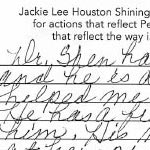 Jackie Lee Houston Shining
for actions that reflect Pe
that reflect the way i
Dr. Shen ha
and he is a
helped me
He has a
him. His